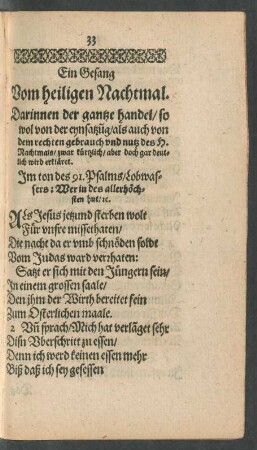 33
Ein Gesang
Vom heiligen Nachtmal.
Darinnen der gantze handel/ so
wol von der eynsatzūg/ als auch von
dem rechten gebrauch vnd nutz des H.
Nachtmals/ zwar kürtzlich/ aber doch gar deut-
lich wird erkläret.
Im ton des 91. Psalms/ Lobwas-
sers: Wer in des allerhöch-
sten hut/ ꝛc.
ALs Jesus jetzund sterben wolt
Für vnsre missethaten/
Die nacht da er vmb schnöden soldt
Vom Judas ward verrhaten:
Satzt er sich mit den Jüngern sein/
In einem grossen saale/
Den jhm der Wirth bereitet fein
Zum Osterlichen maale.
2 Vñ sprach/ Mich hat verlāget sehr
Disn Vberschritt zu essen/
Denn ich werd keinen essen mehr
Biß daß ich sey gesessen